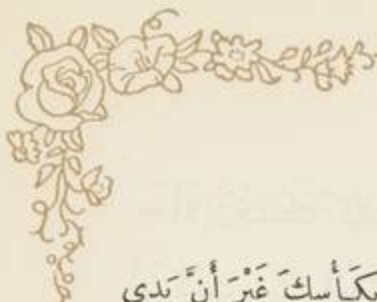 بكَأسِكَ غَيْرَ أَنَّ يَدي